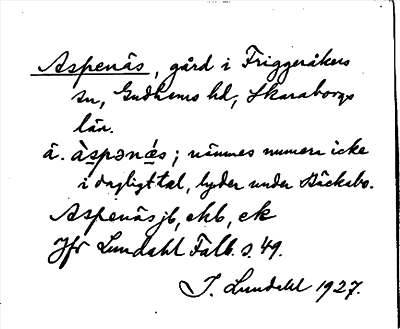 Aspenäs, gård i Friggeråkers
sn, Gudhems hd, Skaraborgs
län.
ä. àspənä́s; nämnes numera icke
i dagligt tal, lyder under Bäckabo.
Aspenäs jb, ekb, ek
Jfr Lundahl Falb. s. 49.
I. Lundahl 1927.